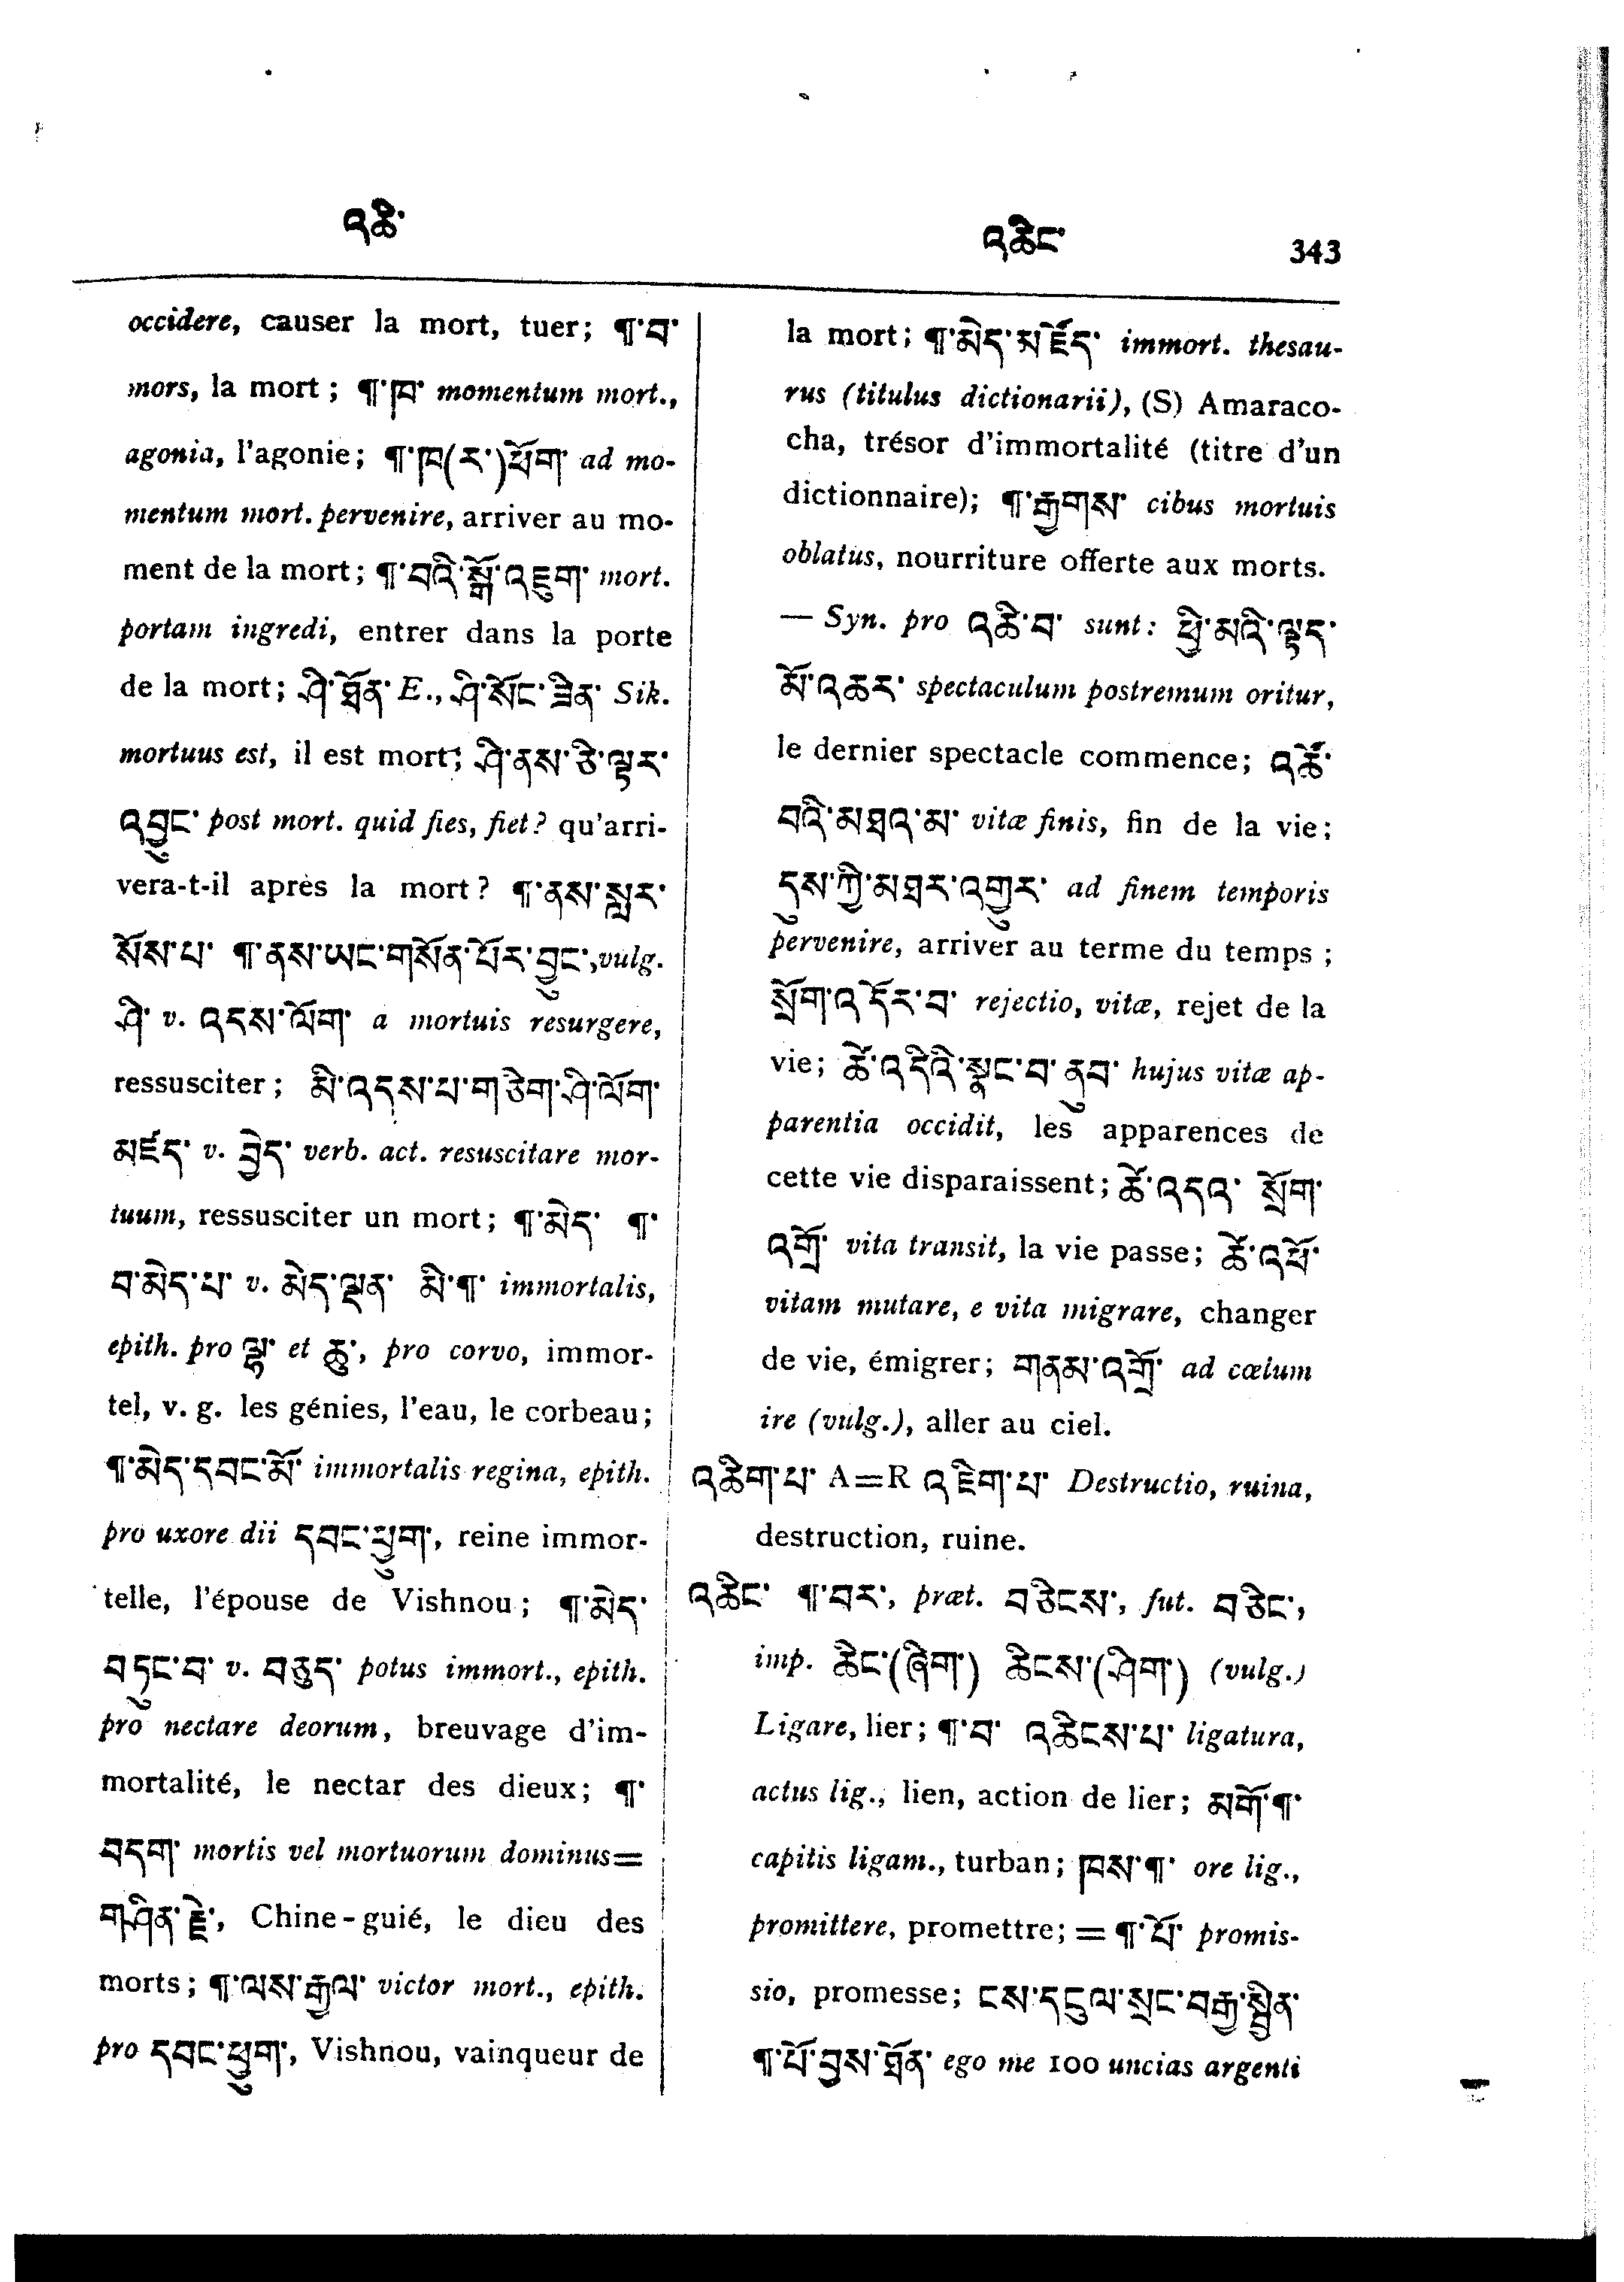 འཆི་
འཆིང་ 343
occidere, causer la mort, tuer; ¶་བ་
mors, la mort; ¶་ཁ་ momentum mort.,
agonia, l'agonie; ¶་ཁ(ར་)ཕོག་ ad mo-
mentum mort. pervenire, arriver au mo-
ment de la mort; ¶་བའི་སྒོ་འཇུག་ mort.
portam ingredi, entrer dans la porte
de la mort; ཤི་ཐོན་ E., ཤི་སོང་ཟིན་ Sik.
mortuus est, il est mort; ཤི་ནས་ཅི་ལྟར་
འབྱུང་ post mort. quid fies, fiet? qu'arri-
vera-t-il après la mort? ¶་ནས་སླར་
སོས་པ་ ¶་ནས་ཡང་གསོན་པོར་བྱུང་, vulg.
ཤི་ v. འདས་ལོག་ a mortuis resurgere,
ressusciter; མི་འདས་པ་གཅིག་ཤི་ལོག་
མཛད་ v. བྱེད་ verb. act. resuscitare mor-
tuum, ressusciter un mort; ¶་མེད་ ¶་
བ་མེད་པ་ v. མེད་ལྡན་ མི་¶་ immortalis,
epith. pro ལྷ་ et ཆུ་, pro corvo, immor-
tel, v. g. les génies, l'eau, le corbeau;
¶་མེད་དབང་མོ་ immortalis regina, epith.
pro uxore dii དབང་ཕྱུག་, reine immor-
telle, l'épouse de Vishnou; ¶་མེད་
བཏུང་བ་ v. བཅུད་ potus immort., epith.
pro nectare deorum, breuvage d'im-
mortalité, le nectar des dieux; ¶་
བདག་ mortis vel mortuorum dominus=
གཤིན་རྗེ་, Chine-guié, le dieu des
morts; ¶་ལས་རྒྱལ་ victor mort., epith.
pro དབང་ཕྱུག་, Vishnou, vainqueur de
la mort; ¶་མེད་མཛོད་ immort. thesau-
rus (titulus dictionarii), (S) Amaraco-
cha, trésor d'immortalité (titre d'un
dictionnaire); ¶་རྒྱགས་ cibus mortuis
oblatus, nourriture offerte aux morts.
— Syn. pro འཆི་བ་ sunt: ཕྱི་མའི་ལྟད་
མོ་འཆར་ spectaculum postremum oritur,
le dernier spectacle commence; འཚོ་
བའི་མཐའ་མ་ vitæ finis, fin de la vie;
དུས་ཀྱི་མཐར་འགྱུར་ ad finem temporis
pervenire, arriver au terme du temps;
སྲོག་འདོར་བ་ rejectio, vitæ, rejet de la
vie; ཚེ་འདིའི་སྣང་བ་ནུབ་ hujus vitæ ap-
parentia occidit, les apparences de
cette vie disparaissent; ཚེ་འདའ་ སྲོག་
འགྲོ་ vita transit, la vie passe; ཚེ་འཕོ་
vitam mutare, e vita migrare, changer
de vie, émigrer; གནམ་འགྲོ་ ad cœlum
ire (vulg.), aller au ciel.
འཆིག་པ་ A=R འཇིག་པ་ Destructio, ruina,
destruction, ruine.
འཆིང་ ¶་བར་, præt. བཅིངས་, fut. བཅིང་,
imp. ཆིང་(ཞིག་) ཆིངས་(ཤིག་) (vulg.)
Ligare, lier; ¶་བ་ འཆིངས་པ་ ligatura,
actus lig., lien, action de lier; མགོ་¶་
capitis ligam., turban; ཁས་¶་ ore lig.,
promittere, promettre; = ¶་པོ་ promis-
sio, promesse; ངས་དངུལ་སྲང་བརྒྱ་སྦྱིན་
¶་པོ་བྱས་ཐོན་ ego me 100 uncias argenti